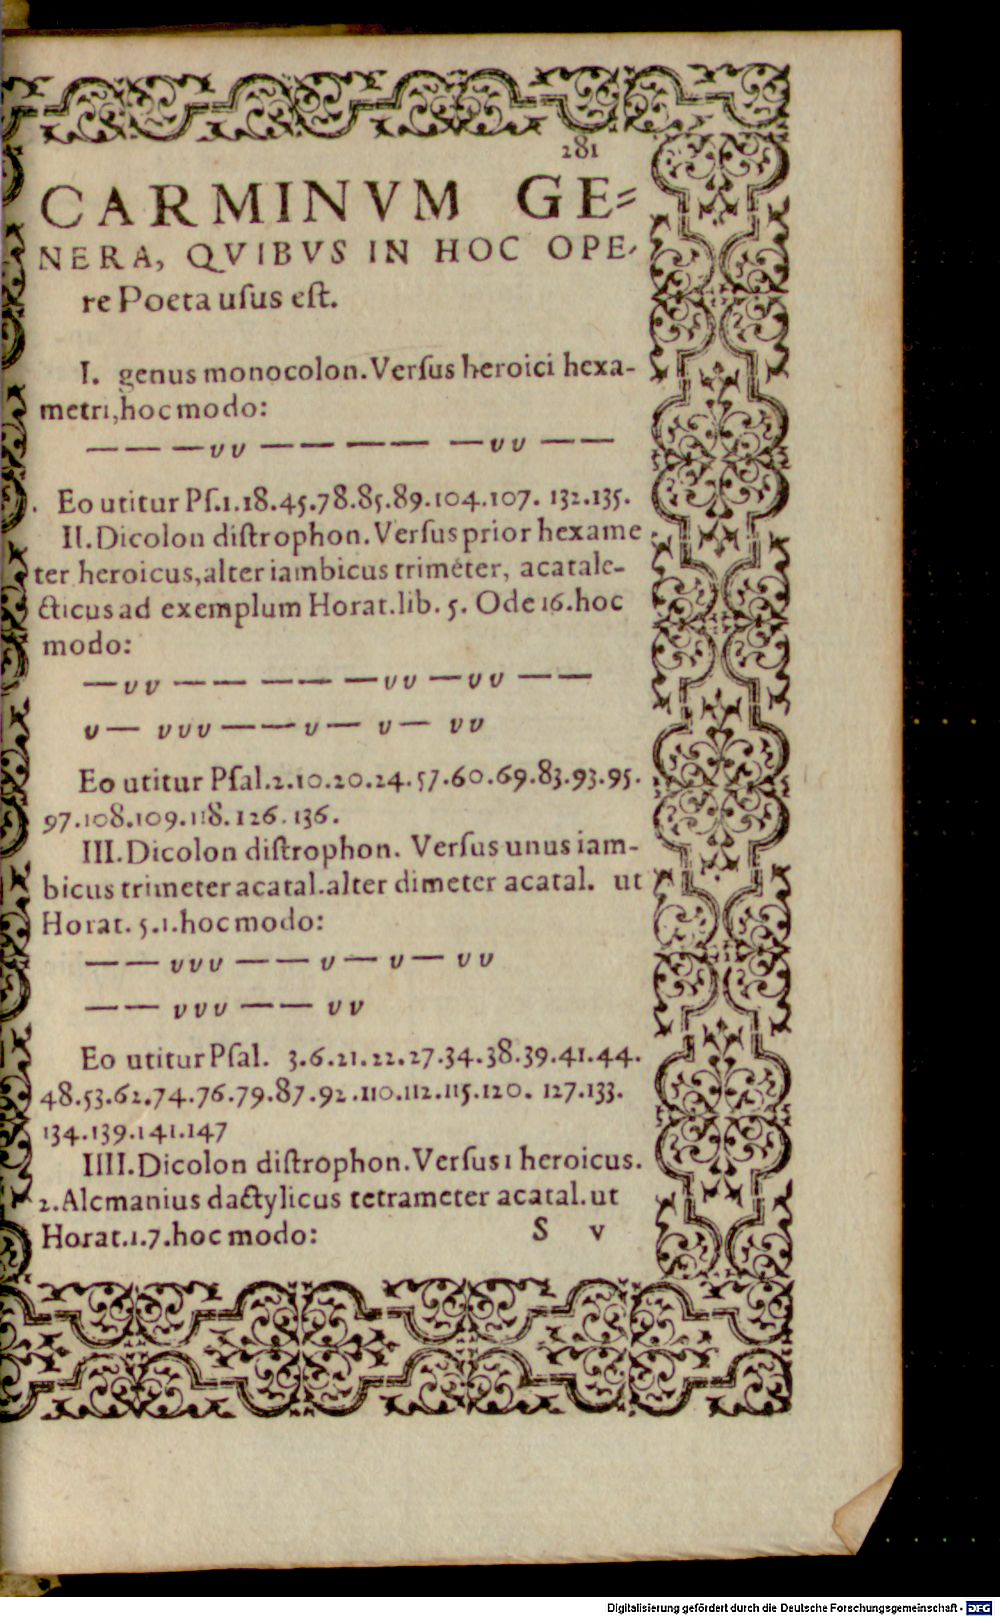 281
CARMINVM GE-
NERA, QVIBVS IN HOC OPE-
re Poeta uſus eſt.
I. genus monocolon. Verſus heroici hexa-
metri, hoc modo:
— — — υ υ — — — — — υ υ — —
Eo utitur Pſ.1.18.45.78.85.89.104.107. 132.135.
II. Dicolon diſtrophon. Verſus prior hexame
ter heroicus, alter iambicus trimeter, acatale-
cticus ad exemplum Horat. lib. 5. Ode 16. hoc
modo:
— υ υ — — — — — υ υ — υ υ — —
υ — υ υ υ — — υ — υ — υ υ
Eo utitur Pſal.2.10.20.24.57.60.69.83.93.95.
97.108.109.118.126.136.
III. Dicolon diſtrophon. Verſus unus iam-
bicus trimeter acatal. alter dimeter acatal. ut
Horat. 5.1. hoc modo:
— — υ υ υ — — υ — υ — υ υ
— — υ υ υ — — υ υ
Eo utitur Pſal. 3.6.21.22.27.34.38.39.41.44.
48.53.62.74.76.79.87.92.110.112.115.120. 127.133.
134.139.141.147
IIII. Dicolon diſtrophon. Verſus 1 heroicus.
2. Alcmanius dactylicus tetrameter acatal. ut
Horat.1.7. hoc modo: S v
Digitalisierung gefördert durch die Deutsche Forschungsgemeinschaft - DFG